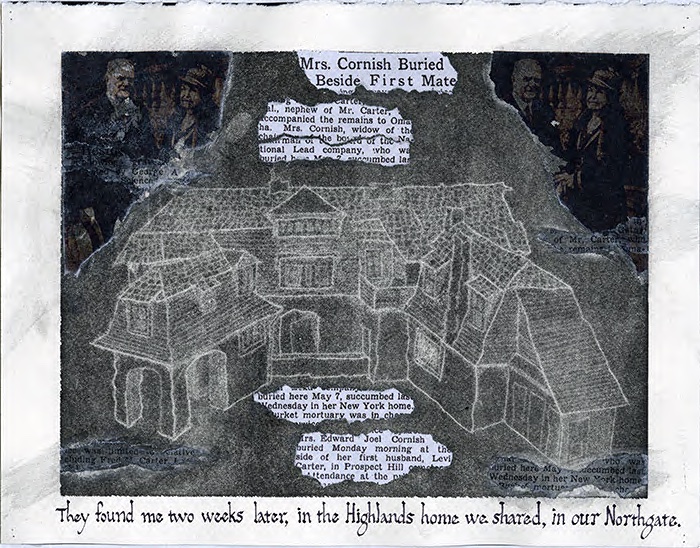 Mrs. Cornish Buried
Beside First Mate
al., nephew of Mr. Carter,
accompanied the remains to Oma
ha. Mrs. Cornish, widow of the
chairman of the board of the Na
tional Lead company, who wa
buried here May 7, succumbed la
George A
of Mr. Carter, who
remains
buried here May 7, succumbed las
Wednesday in her New York home.
Burket mortuary was in cha
Mrs. Edward Joel Cornish
buried Monday morning at the
side of her first husband, Levi
Carter, in Prospect Hill
attendance at the
was limited
cluding Fred M. Carter
who was
buried here May succumbed las
Wednesday in her New York home
mortuary
They found me two weeks later, in the Highlands home we shared, in our Northgate.